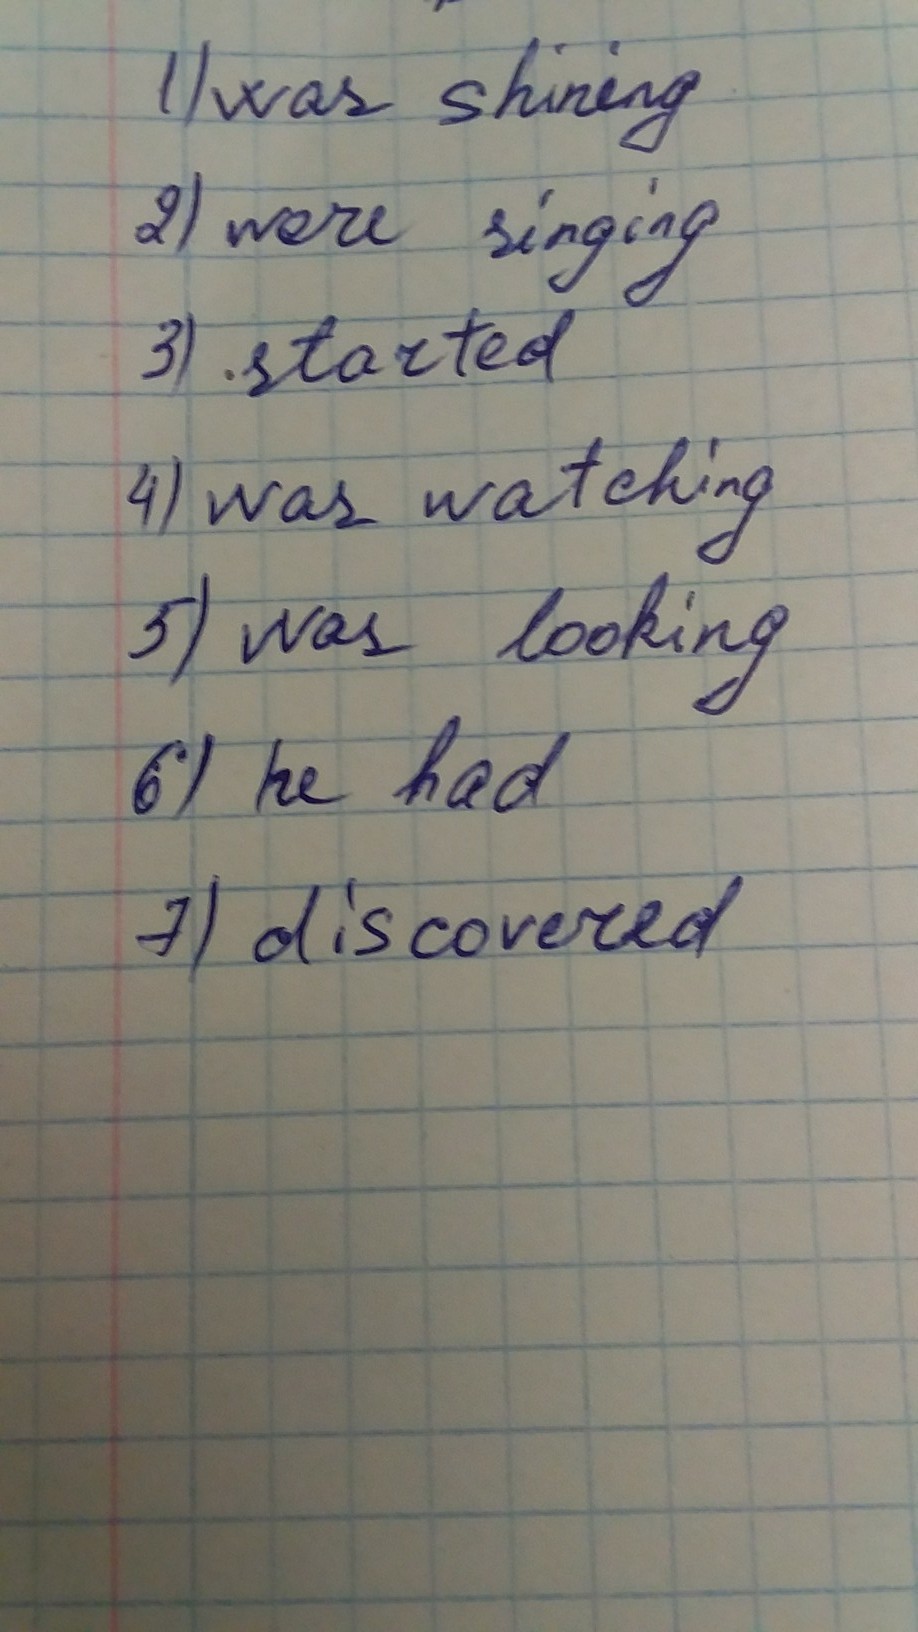 1) was shining
2) were singing
3) started
4) was watching
5) was looking
6) he had
7) discovered